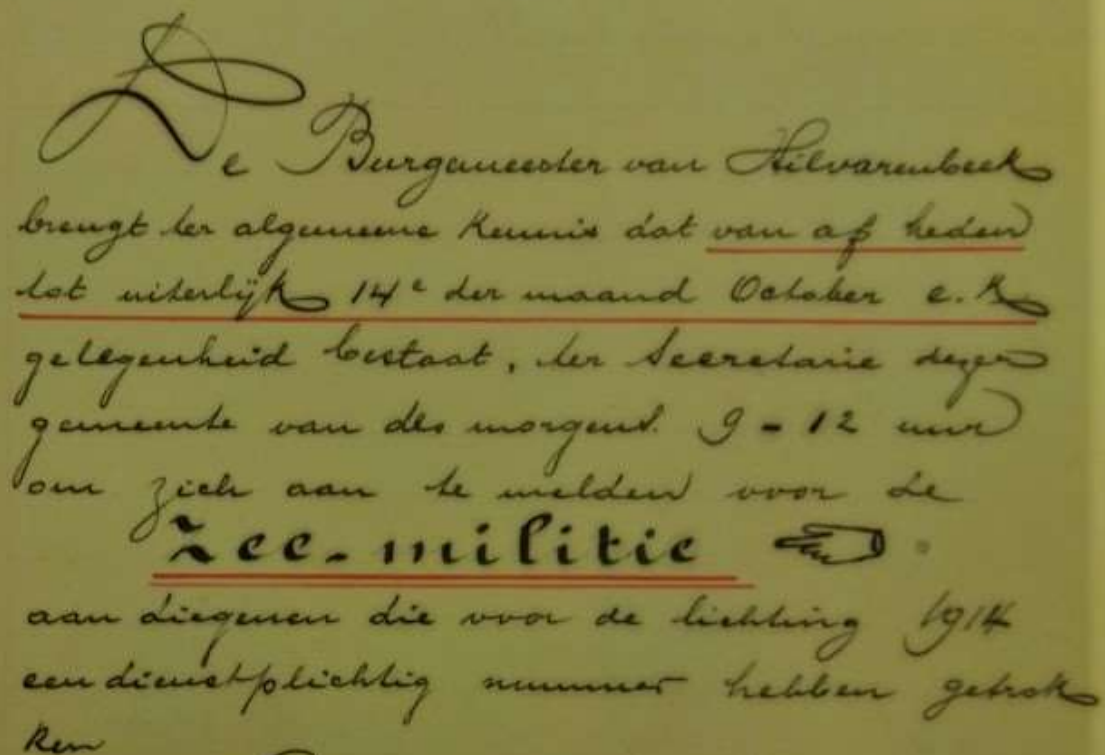 De Burgemeester van Hilvarenbeek
brengt ter algemeene kennis dat van af heden
tot uiterlijk 14e der maand October e.k
gelegenheid bestaat, ter Secretarie dezer
gemeente van des morgens 9 - 12 uur
om zich aan te melden voor de
Zee-militie
aan diegenen die voor de lichting 1914
een dienstplichtig nummer hebben getrok
ken